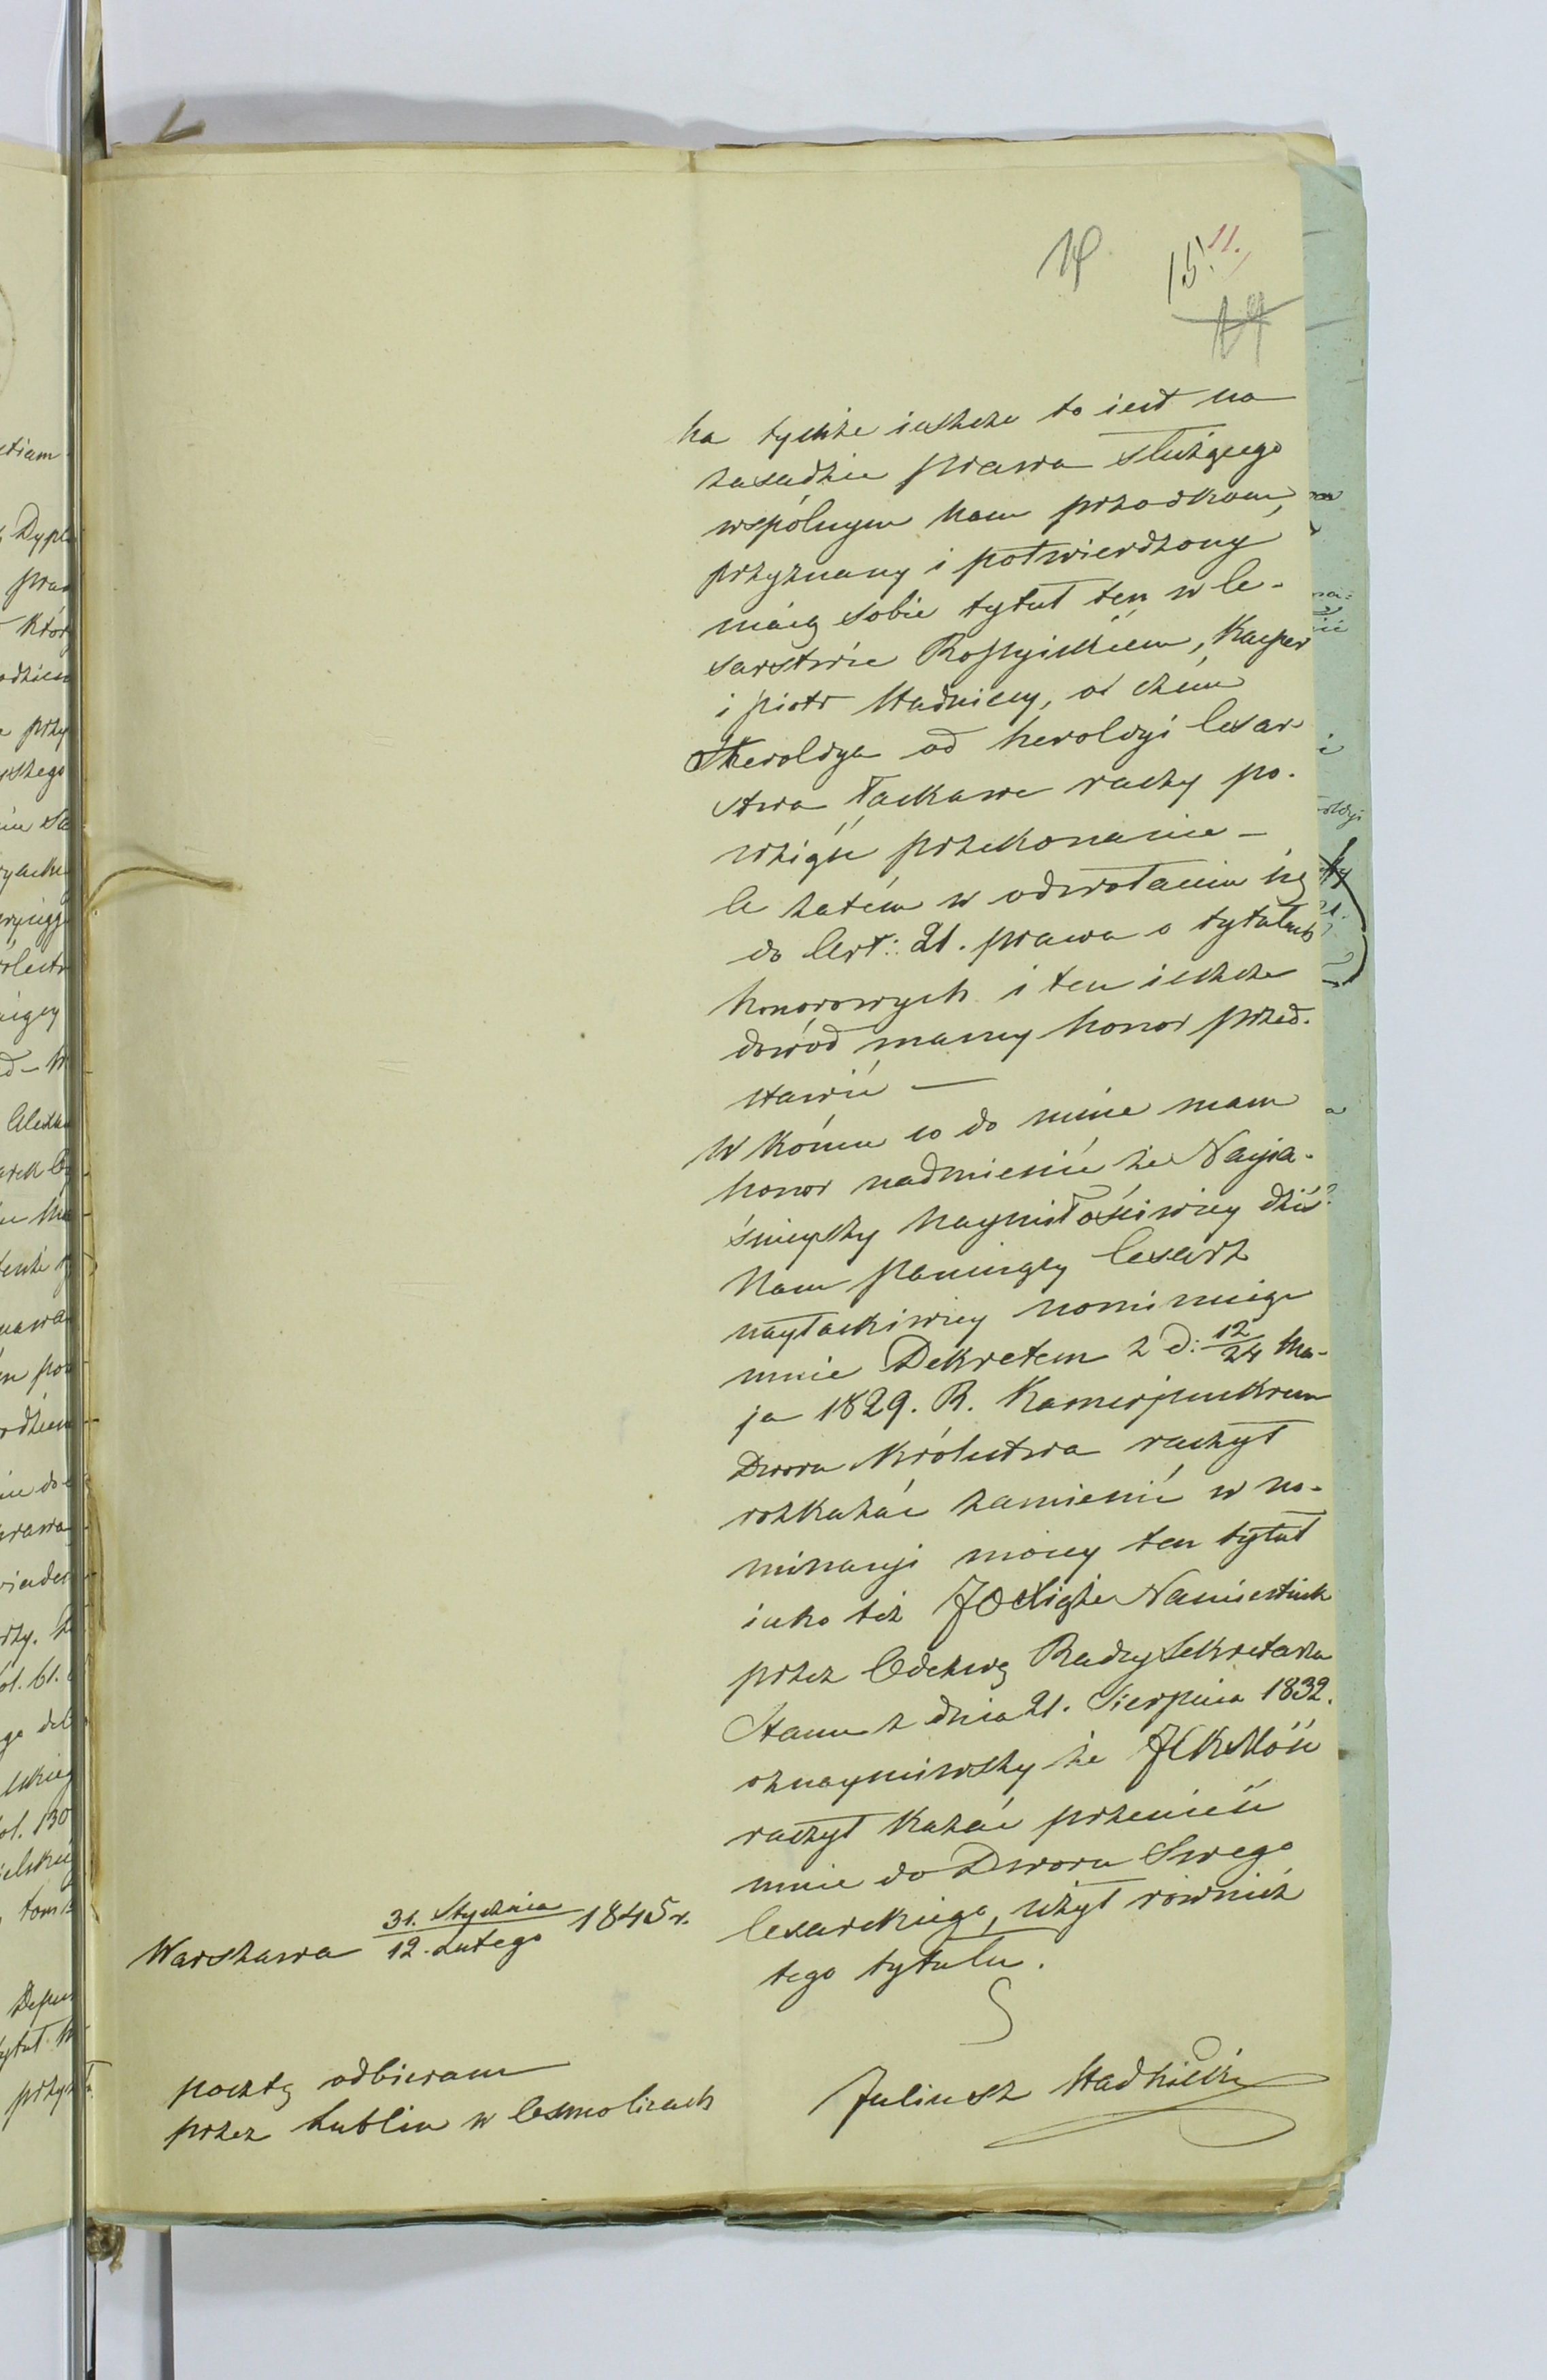 14 15. 11.
19
Na tychże ieszcze to iest na
zasadzie prawa służącego
wspólnym nam przodkom,
przyznany i potwierdzony
máią sobie tytuł ten w Ce-
sarstwie Rossyiskiém, Kacper
i Piotr Stadniccy, o czém
Heroldya od heroldyi Cesar
stwa łaskawe raczy po-
wziąść przekonanie –
A zatém w odwołaniu się
do Art: 21. prawa o tytułach
honorowych i ten ieszcze
dowód mamy honor przed-
stawić —
W końcu co do mnie mam
honor nadmienić że Nayia-
śnieyszy Naymiłościwiey dziś
Nam panuiący Cesarz
nayłaskawiey nominuiąc
mnie Dekretem z d: 12/24 Ma-
ja 1829. R. Kamerjunkrem
Dworu Królestwa raczył
rozkazać zamieścić w no-
minacyi moiey ten tytuł
iako też JO Xiąże Namiestnik
przez Odezwę Radcy Sekretarza
Stanu z dnia 21. Sierpnia 1832.
oznaymiwszy że JCKMość
raczył kazać przenieść
mnie do Dworu Swego
Cesarskiego, użył również
tego tytułu.
Warszawa 31. Stycznia/12. Lutego 1845 r.
Juliusz Stadnicki
pocztę odbieram
przez Lublin w Osmolicach